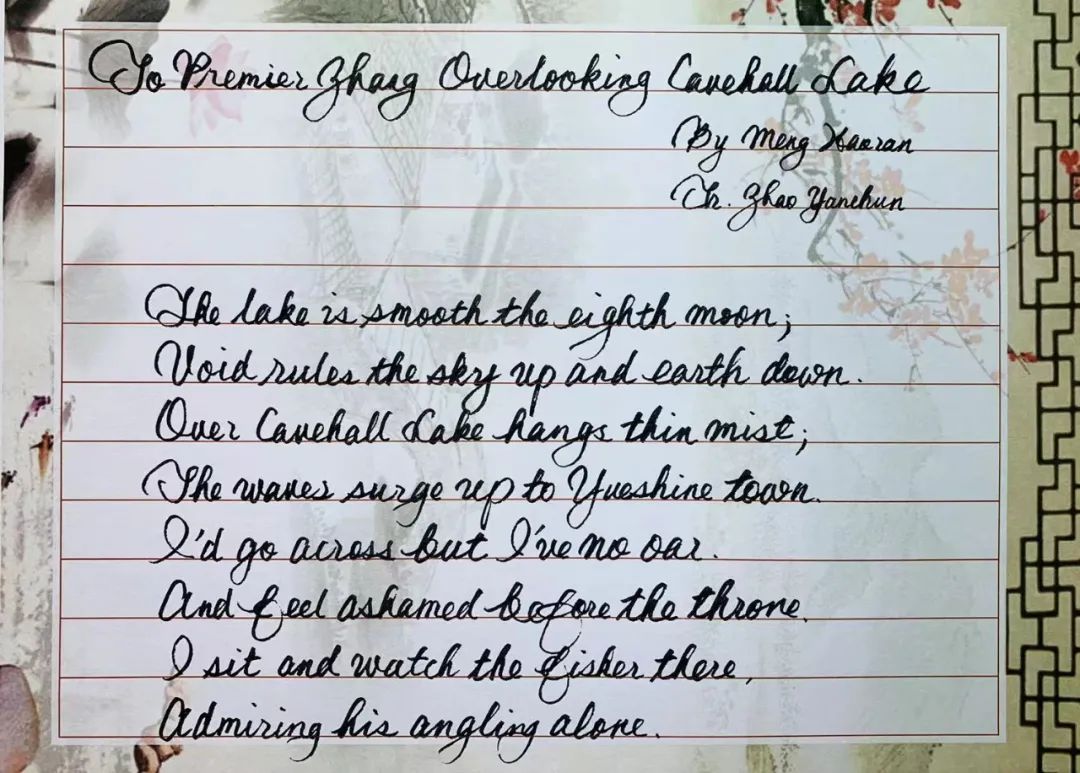 To Premier Zhang Overlooking Cavehall Lake
By Meng Haoran
Tr. Zhao Yanchun
The lake is smooth the eighth moon;
Void rules the sky up and earth down.
Over Cavehall Lake hangs thin mist;
The waves surge up to Yueshine town.
I'd go across but I've no oar.
And feel ashamed before the throne.
I sit and watch the fisher there,
Admiring his angling alone.